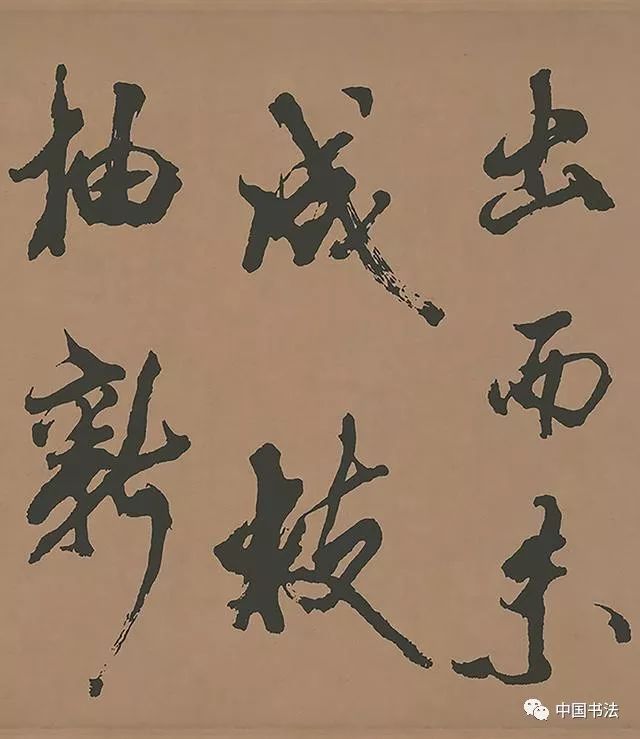 出而未
成枝
抽新
中国书法